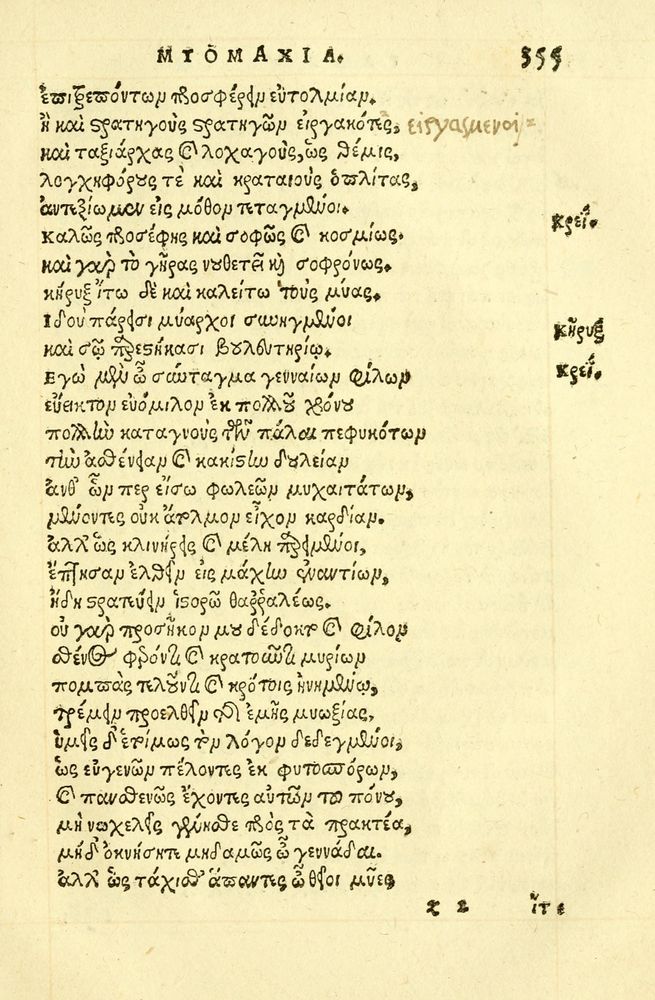 ΜΥΟΜΑΧΙΑ. 355
ἐπιτρεπόντων προσφέρειν εὐτολμίαν.
ἢ καὶ στρατηγοὺς στρατηγῶν εἰργακότες, εἰργασμένοι
καὶ ταξιάρχας καὶ λοχαγοὺς, ὡς θέμις,
λογχηφόρους τὲ καὶ κραταιοὺς ὁπλίτας,
ἀντεξίωμεν εἰς μόθον τεταγμένοι.
καλῶς προσέφης καὶ σοφῶς καὶ κοσμίως. Κρεΐ.
καὶ γὰρ τὸ γῆρας νουθετεῖ καὶ σοφρόνως.
κήρυξ ἴτω δὲ καὶ καλείτω τοὺς μύας.
Ιδοὺ πάρεισι μύαρχοι συνηγμένοι Κῆρυξ
καὶ σῷ πρεστήκασι βουλευτηρίῳ.
Εγὼ μὲν ὦ σύνταγμα γενναίων φίλων Κρεΐ.
εὔεικτον εὐόμιλον ἐκ πολλοῦ χρόνου
πολλὴν καταγνοὺς τῶν πάλαι πεφυκότων
τὴν ἀσθένειαν καὶ κακίστην δουλείαν
ἀνθ' ὧν περ εἴσω φωλεῶν μυχαιτάτων,
μένοντες οὐκ ἄτολμον εἶχον καρδίαν.
ἀλλ' ὡς κλινήρεις καὶ μέλη παρειμένοι,
ἔπτησαν ἐλθεῖν εἰς μάχην ἐναντίων,
ἤδη στρατεύειν ἱστορῶ θαρῥαλέως.
οὐ γὰρ προσῆκον μου δέδοκται καὶ φίλον
σθένος φέροντα καὶ κρατοῦντα μυρίων
πομπὰς τελοῦντα καὶ κρότοις ἡνημένῳ,
τρέμειν προελθεῖν διὰ ἐμῆς μυωξίας,
ὑμεῖς δ' ἑτοίμως τὸν λόγον δεδεγμένοι,
ὡς εὐγενῶν πέλοντες ἐκ φυτοσπόρων,
καὶ πανσθενῶς ἔχοντες αὐτῶν τοῦ πόνου,
μὴ νωχελεῖς γένοισθε πρὸς τὰ πρακτέα,
μὴ δ' ὀκνήσητε μηδαμῶς ὦ γεννάδαι.
ἀλλ' ὡς τάχισθ' ἅπαντες ὦ θεῖοι μῦες
z 2 ἴτε